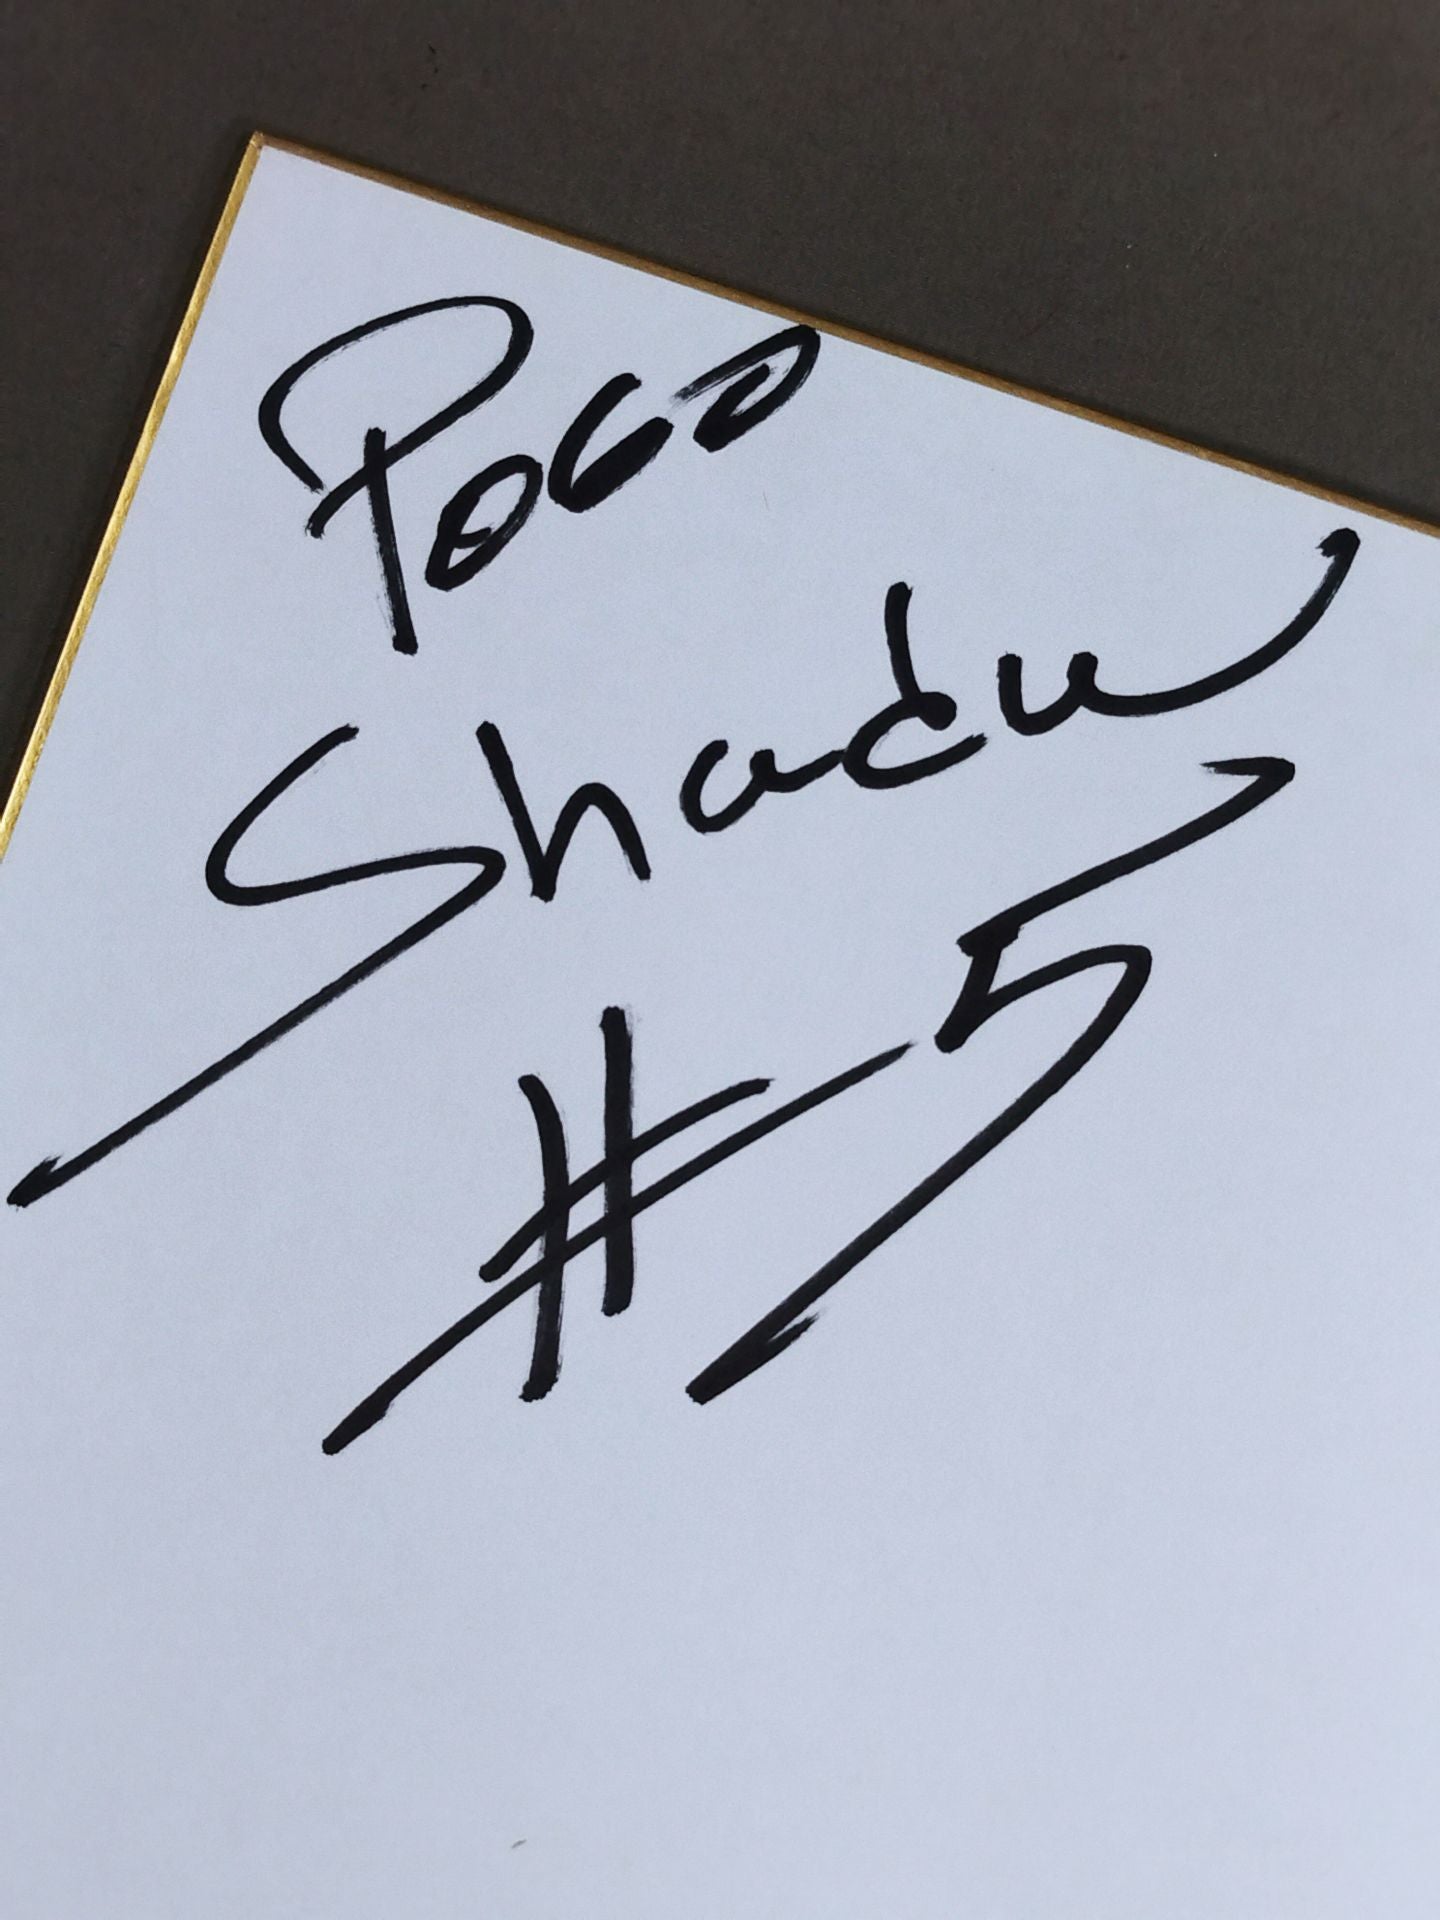 Pogo
Shadw
#5